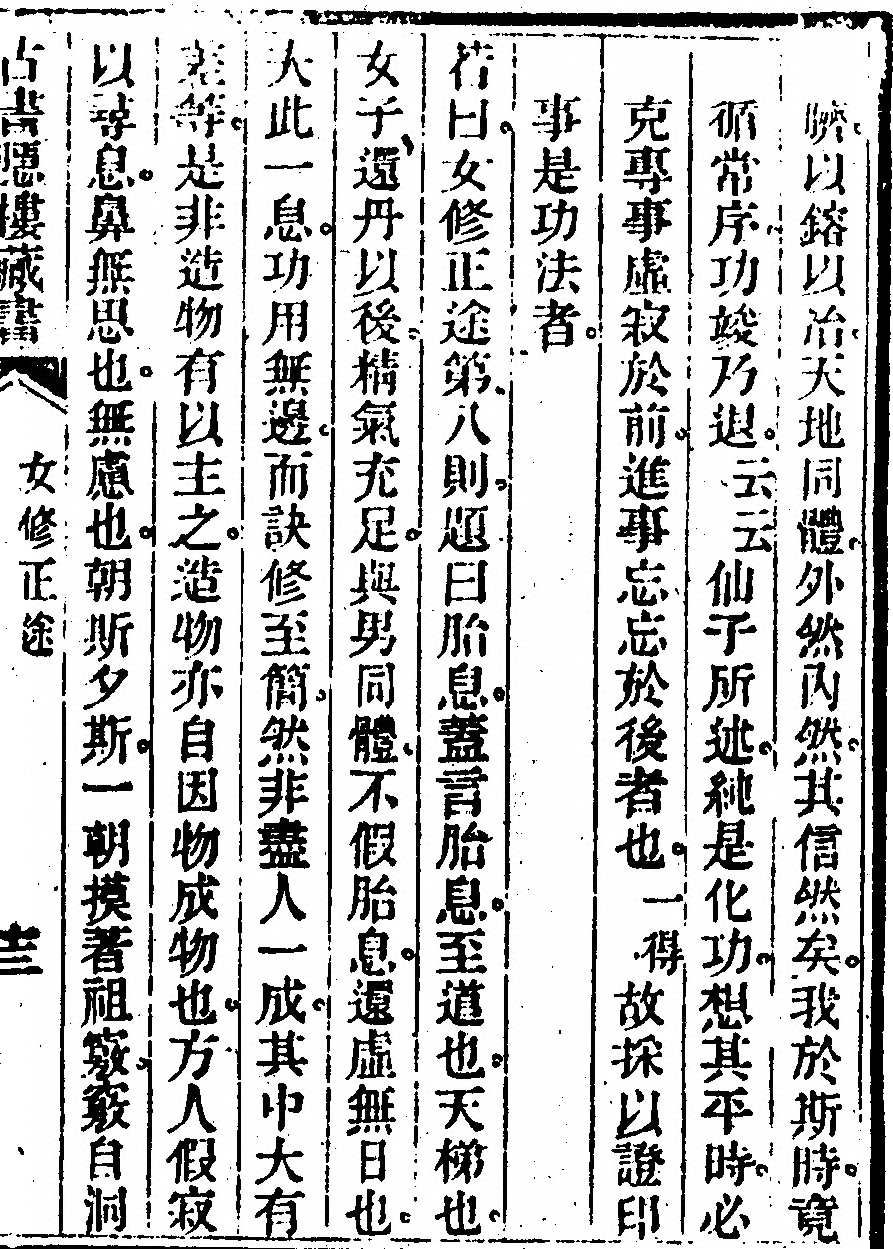 嚌以鎔以冶天地同體外然內然其信然矣我於斯時竟
循常序功竣乃退云云仙子所述純是化功想其平時必
克專事虛寂於前進事忘忘於後者也一得故採以證印
事是功法者
若曰女修正途第八則題曰胎息蓋言胎息至道也天梯也
女子還丹以後精氣充足與男同體不假胎息還虛無日也
大此一息功用無邊而訣修至簡然非盡人一成其中大有
差等是非造物有以主之造物亦自因物成物也方人假寂
以尋息鼻無思也無慮也朝斯夕斯一朝摸著祖竅竅自洞
古書隱樓藏書
女修正途
十三